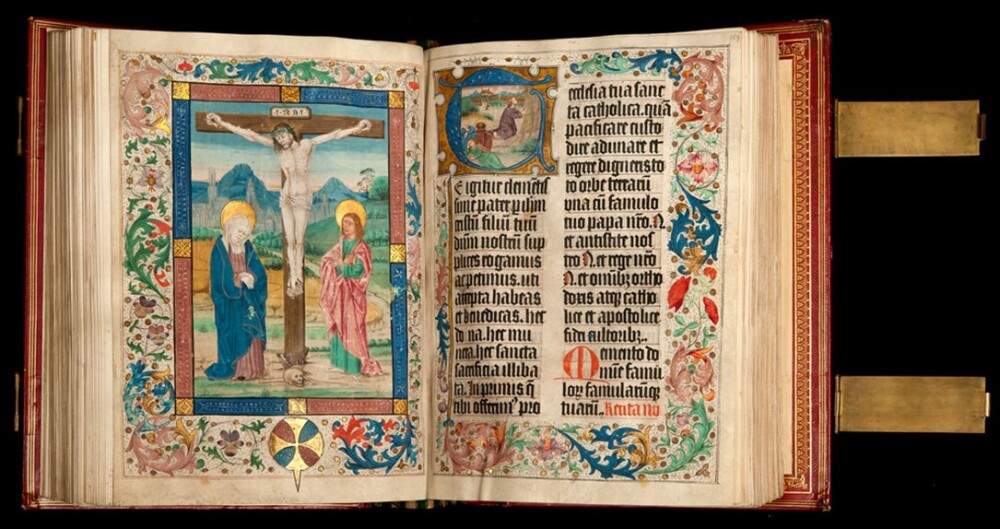 I·N·R·I
E igitur clementis
sime pater p ihm
cristū filiū tuū
dūm nostrū sup
plices rogamus
ac petimus. uti
accepta habeas
et benedicas. hec
do na. hec mu
nera. hec sancta
sacrificia illiba
ta. In primis q̄
tibi offerim9 pro
ecclesia tua sanc
ta catholica. quā
pacificare custo
dire adunare et
regere digneris to
to orbe terrarū
vna cū famulo
tuo papa nr̄o. N.
et antistite nos
tro N. et rege nr̄o
N. et omnibꝫ ortho
doxis atqꝫ catho
lice et apostolice
fidei cultoribꝫ.
Memento do
mine famu
loꝝ famularūqꝫ
tuarū.